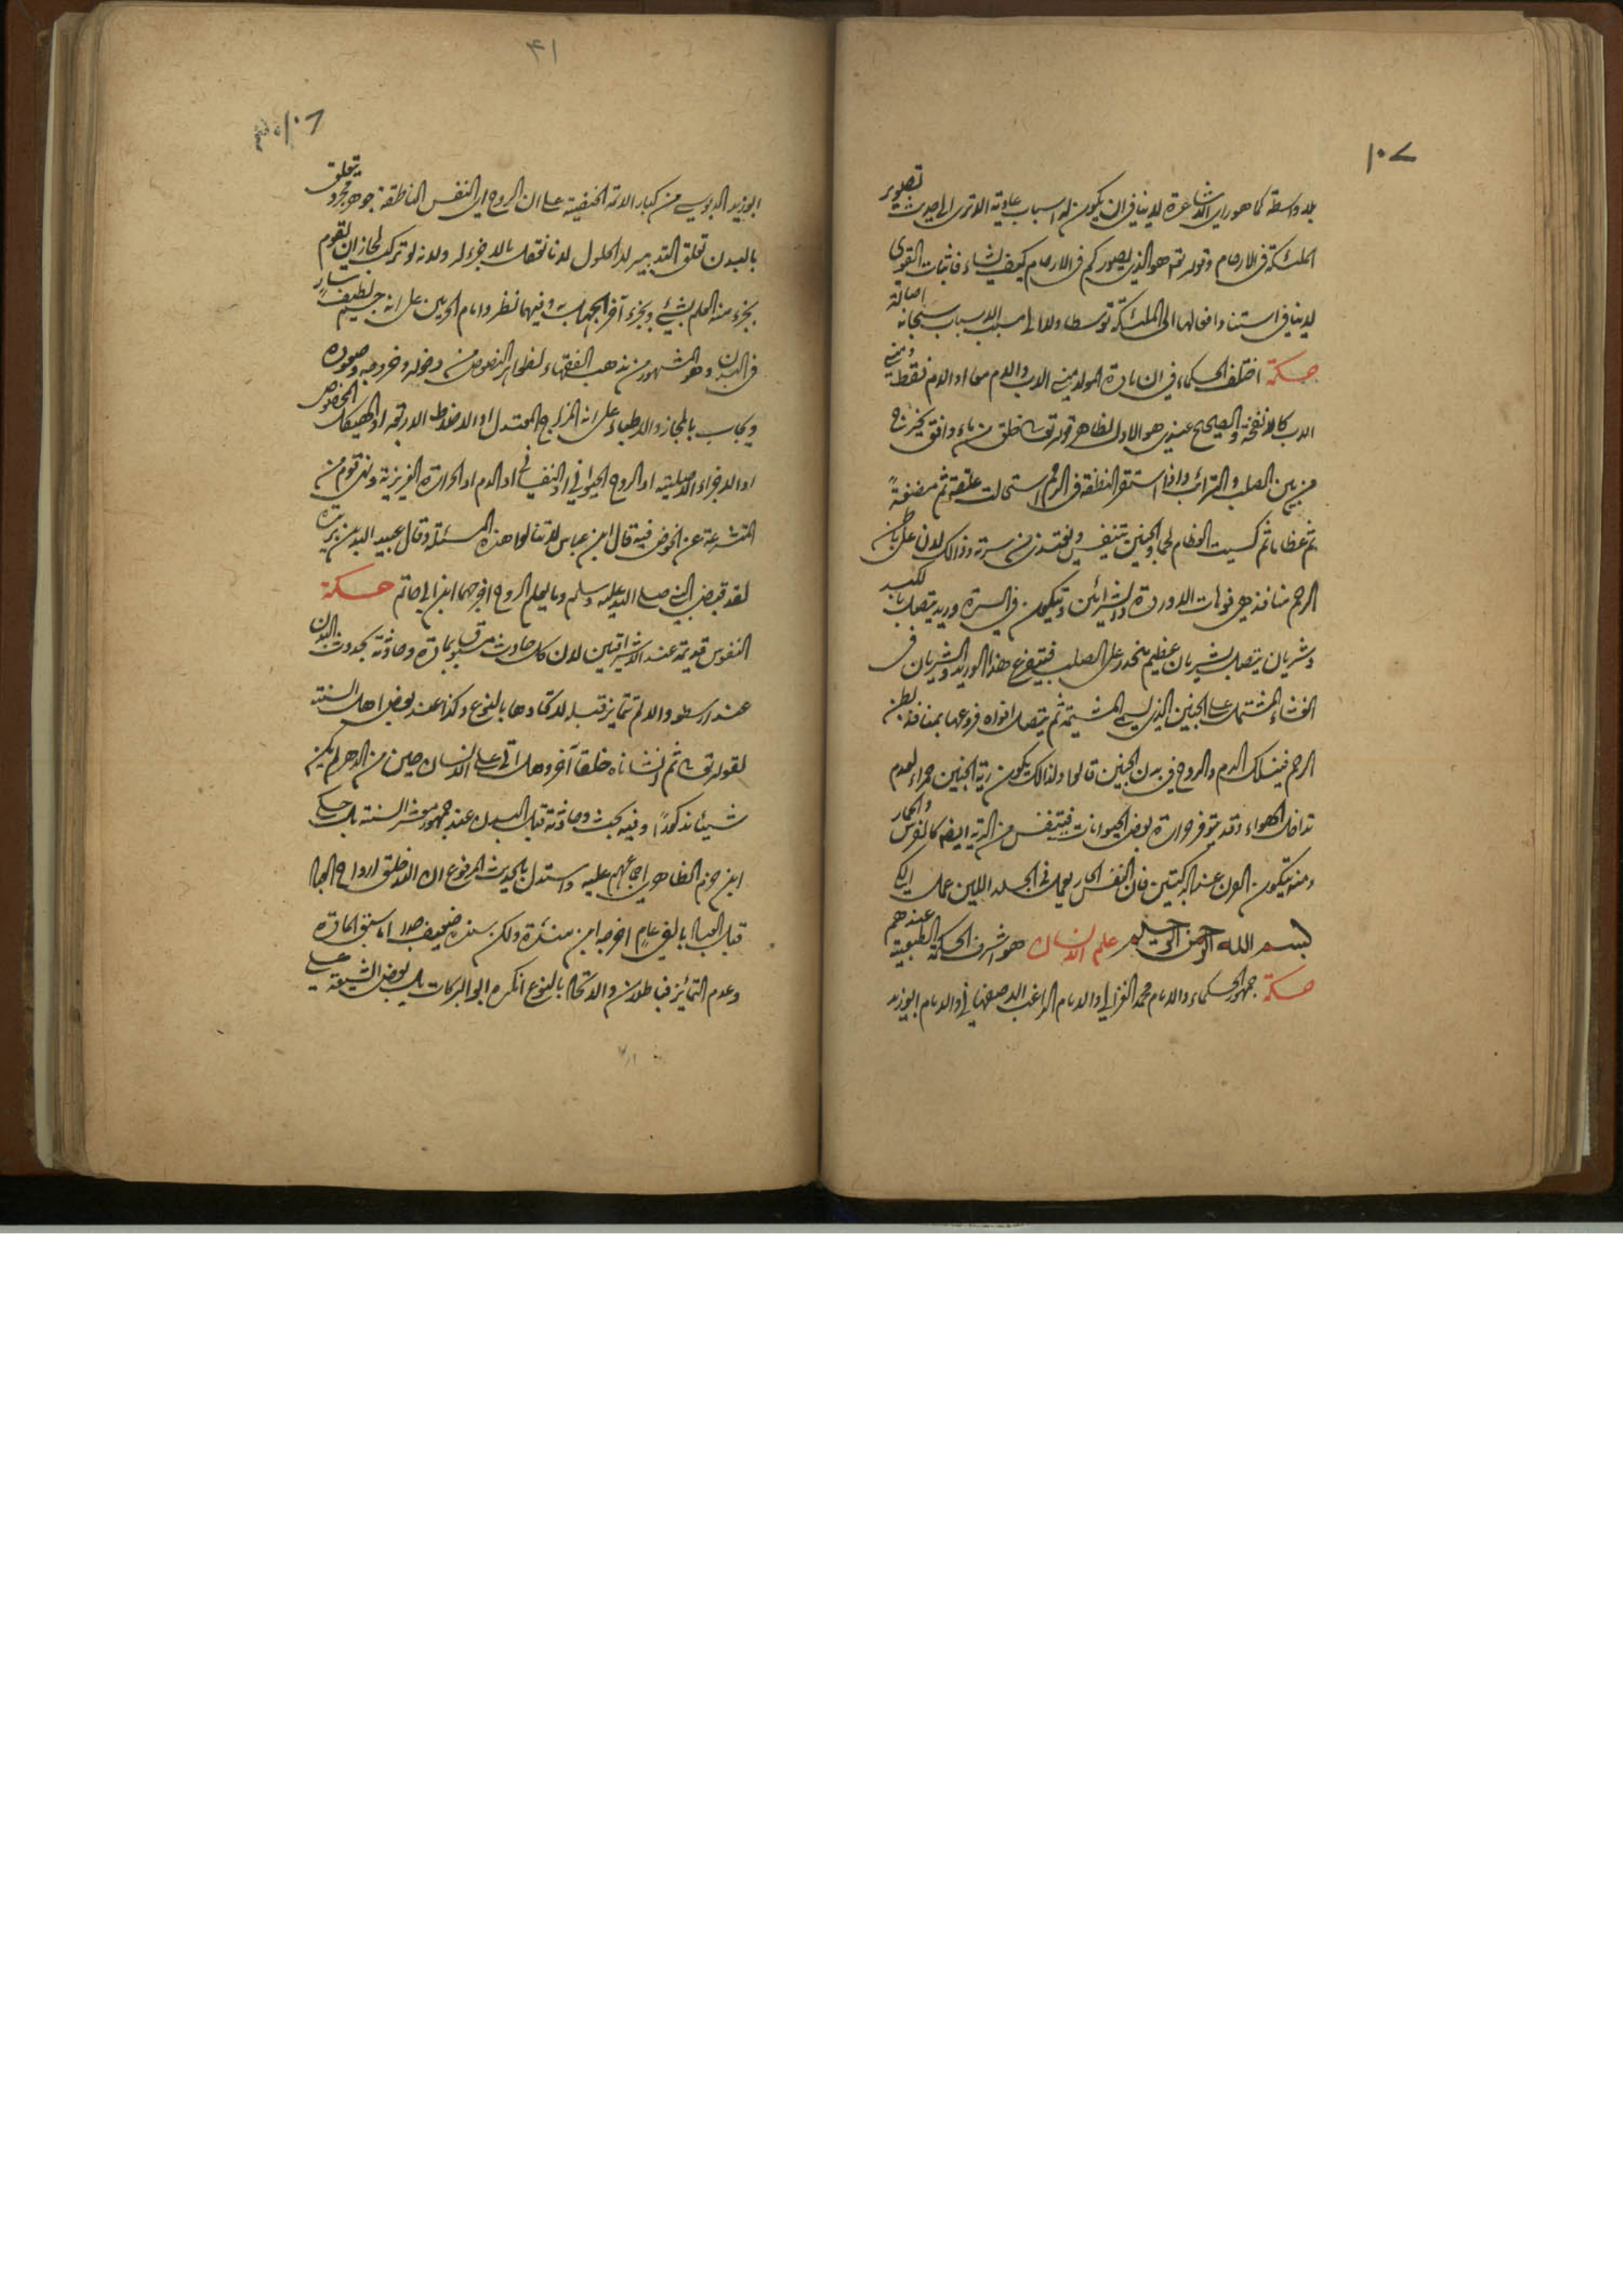 ١٠٧
بلا واسطة كما هو راي الاشاعرة لا ينافي ان يكون له اسباب عادية الا ترى الى حديث تصوير
الملئكة في الارحام وقوله تع هو الذي يصوركم في الارحام كيف يشاء فاثبات القوى
لا ينافي استناد افعالها الى الملئكة توسطا ولا الى مسبب الاسباب سبحانه اصالة
حكمة اختلف الحكماء في ان مادة المولد مني الاب والام معا او الام فقط ومني
الاب كالانفحة والصحيح عندي هو الاول لظاهر قوله تع خلق من ماء دافق يخرج
من بين الصلب والترائب واذا استقر النطفة في الرحم استحالت علقة ثم مضغةً
ثم عظاما ثم كسيت العظام لحما والجنين يتنفس ويغتذي من سرته وذالك لان على باطن
الرحم منافذ هي فوهات الاوردة والشرائين ويتكون في السرة وريد يتصل بالكبد
وشريان يتصل بشريان عظيم منحدر على الصلب فيتفرع هذا الوريد والشريان في
الغشاء المشتمل على الجنين الذي يسمى المشيمة ثم يتصل افواه فروعها بمنافذ بطن
الرحم فينسلك الدم والروح في بدن الجنين قالوا ولذالك يكون رية الجنين حمراء لعدم
تداخل الهواء وقد يتوفر حرارة بعض الحيوانات فيتنفس من الرية ايضا كالفرس والحمار
ومنه يتكون القرن عند الركبتين فان النفس الحار يعمل في الجلد اللين عمل الكي
بسم الله الرحمن الرحيم علم الانسان هو اشرف الحكمة الطبعية عندهم
حكمة جمهور الحكماء والامام محمد الغزالي والامام الراغب الاصفهاني والامام ابوزيد
٤١
١٠٦
ابوزيد الدبوسي من كبار الائمة الحنفية على ان الروح اي النفس الناطقة جوهر مجرد يتعلق
بالبدن تعلق التدبير لا الحلول لانا نتعقل بلا جزء له ولانه لو تركب لجاز ان يقوم
بجزء منه العلم بشيء وبجزء آخر الجهل به وفيهما نظر وامام الحرمين على انه جسم لطيف سارٍ
في البدن وهو المشهور من مذهب الفقهاء لظواهر النصوص من دخوله وخروجه وصعوده
ويجاب بالمجاز والاطباء على انه المزاج المعتدل او الاخلاط الاربعة او الهيكل المخصوص
او الاجزاء الاصلية او الروح الحيواني او النفساني او الدم او الحرارة الغريزية ونهى قوم من
المتشرعة عن الخوض فيه قال ابن عباس لا تنالوا هذه المسئلة وقال عبيد الله بن بريدة
لقد قبض النبي صلى الله عليه وسلم وما يعلم الروح اخرجهما ابن ابي حاتم حكمة
النفوس قديمة عند الاشراقيين لان كل حادث مسبوق بمادة وحادثة بحدوث البدن
عند ارسطو والا لم تتمايز قبله لاتحادها بالنوع وكذا عند بعض اهل السنة
لقوله تع ثم انشأناه خلقا آخر وهل اتى على الانسان حين من الدهر لم يكن
شيئا مذكوراً وفيه بحث وحادثة قبل البدن عند جمهور معشر السنة بل حكى
ابن حزم الظاهري اجماعهم عليه واستدل بالحديث المرفوع ان الله خلق ارواح العبا
قبل العبا بالفي عام اخرجه ابن مندة ولكن سنده ضعيف جدا اما سبق المادة
وعدم التمائز فباطلان والاتحاد بالنوع انكره ابو البركات بل بعض الشيعة على